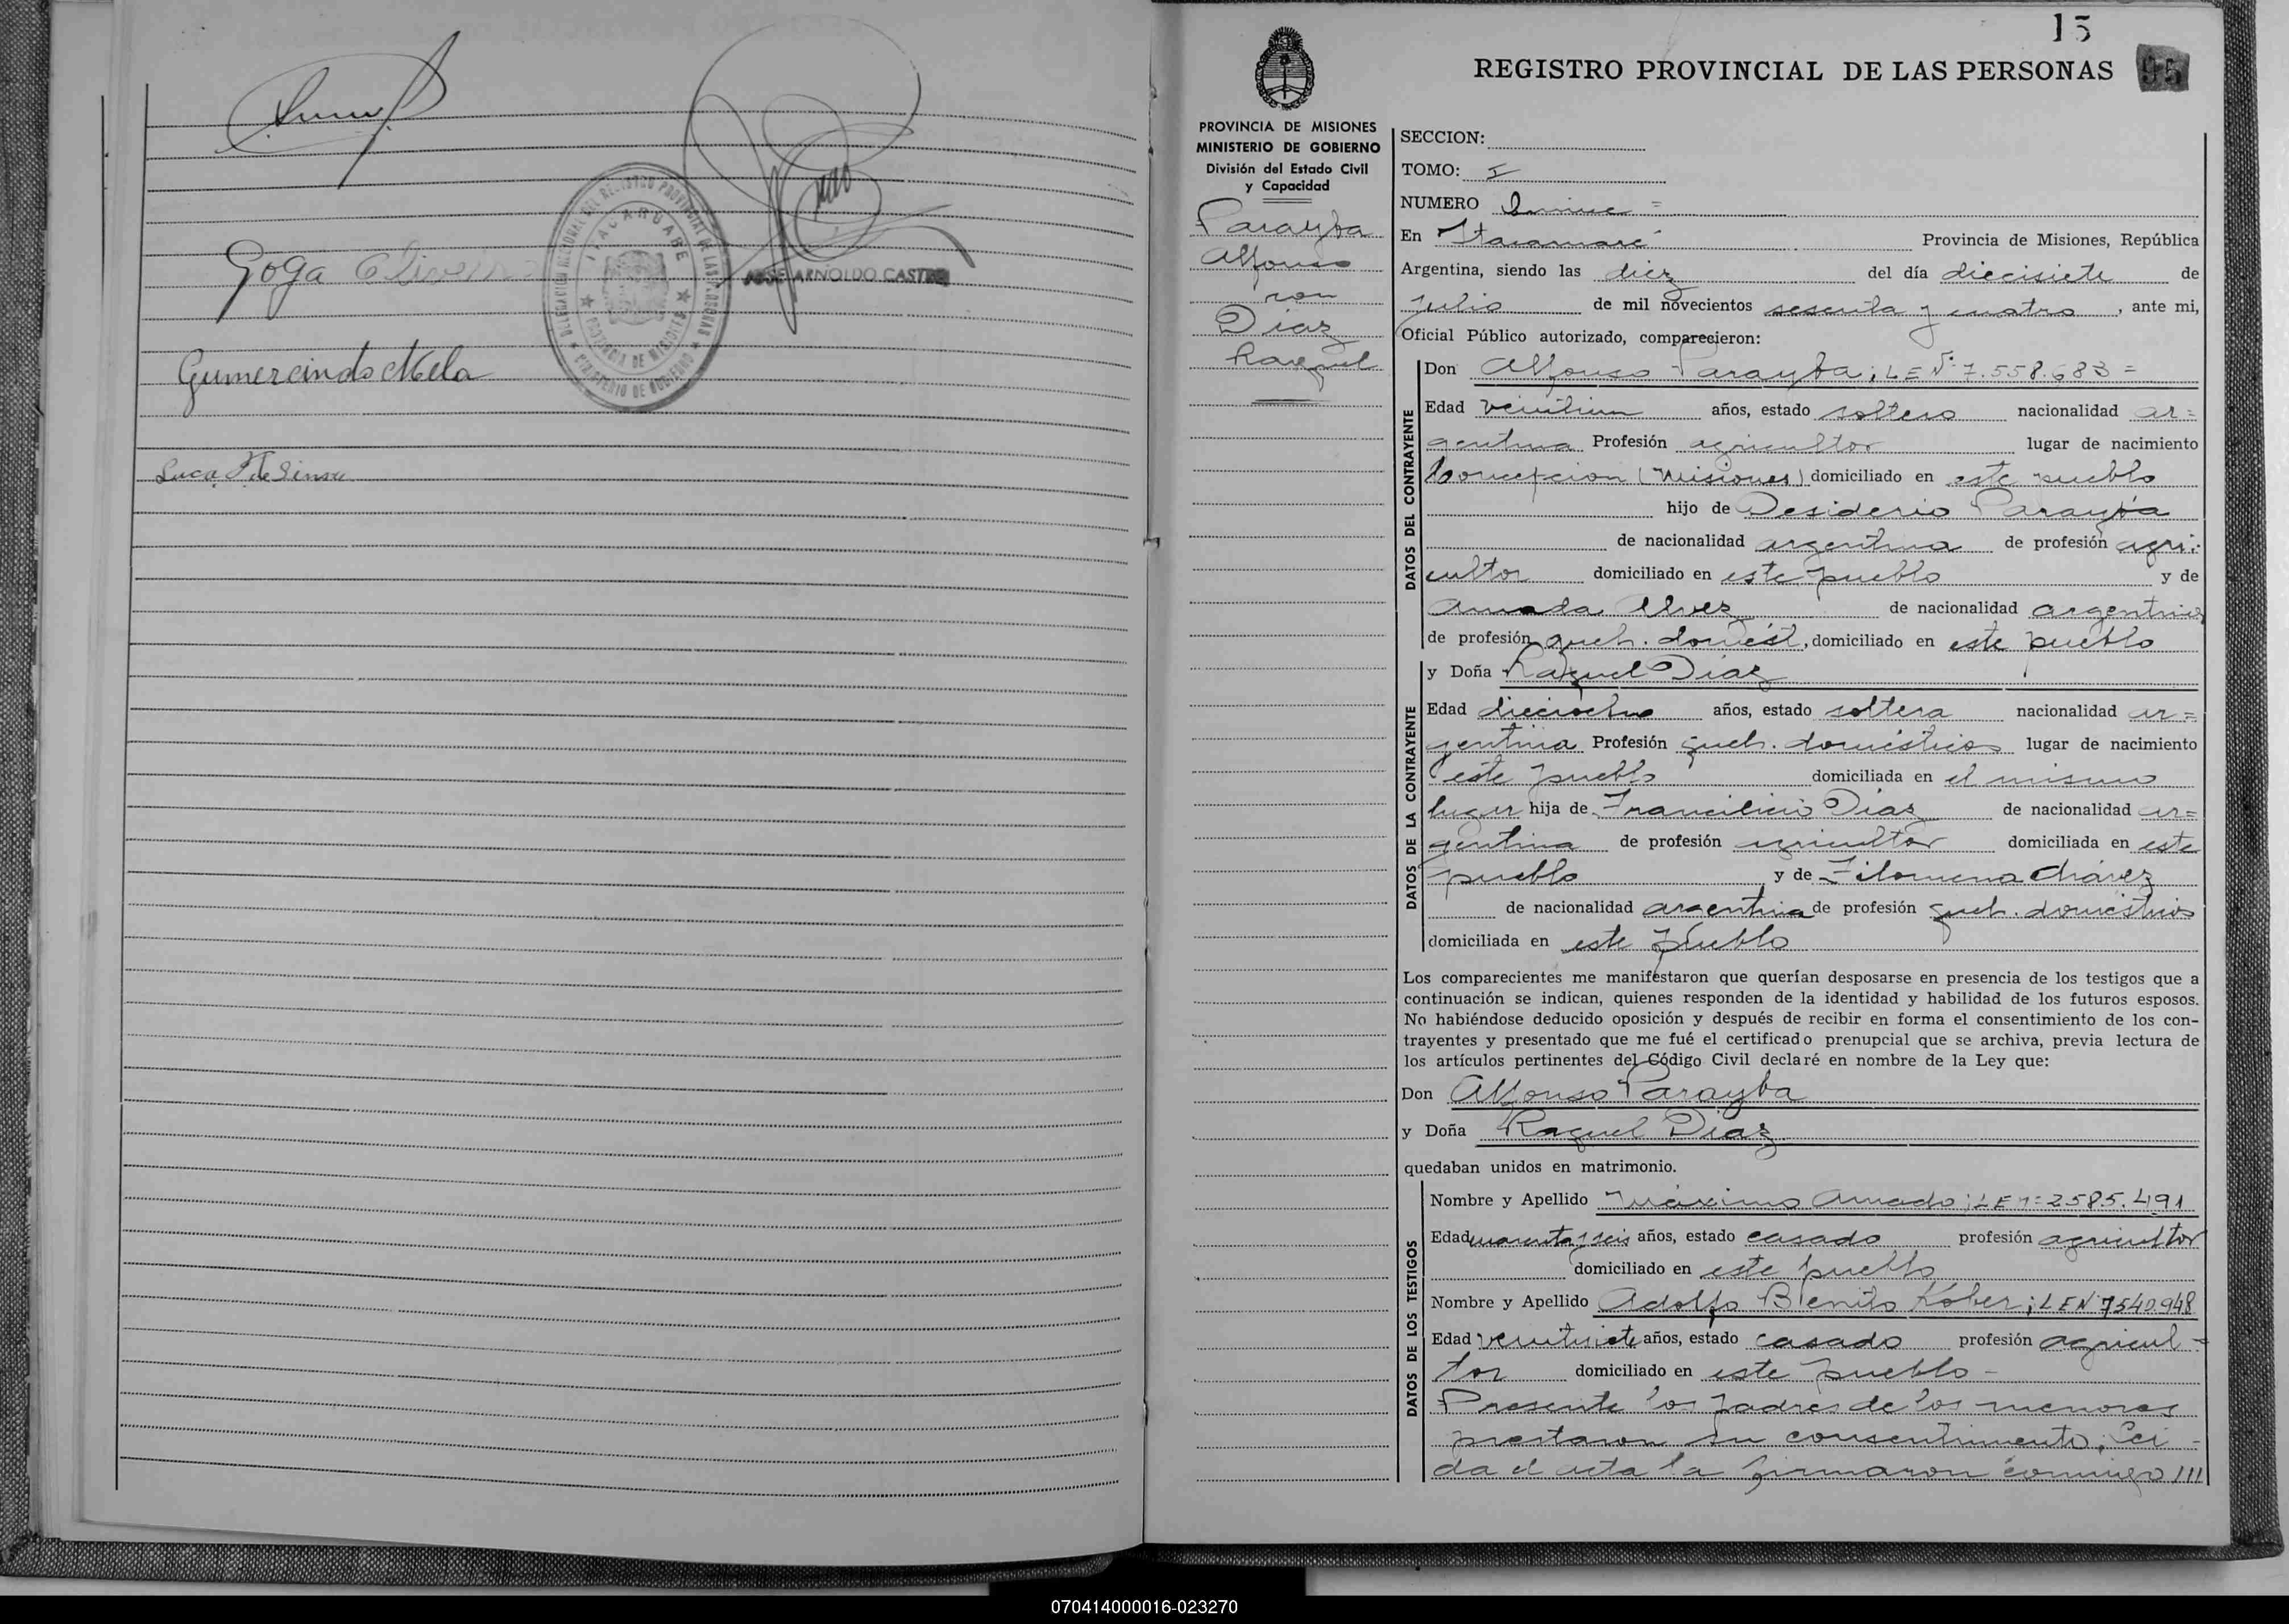 Goga Oliveira
JOSE ARNOLDO CASTRO
ITACARUARE
PROVINCIA DE MISIONES
Gumercindo Mela
Luca
15
REGISTRO PROVINCIAL DE LAS PERSONAS
95
PROVINCIA DE MISIONES
MINISTERIO DE GOBIERNO
División del Estado Civil
y Capacidad
Parayba
Alfonso
con
Diaz
Raquel
SECCION:
TOMO: I
NUMERO Quince =
En Itacaruaré Provincia de Misiones, República
Argentina, siendo las diez del día diecisiete de
Julio de mil novecientos sesenta y cuatro, ante mi,
Oficial Público autorizado, comparecieron:
DATOS DEL CONTRAYENTE
Don Alfonso Parayba; LE Nº 7.558.683 =
Edad veintiun años, estado soltero nacionalidad ar=
gentina Profesión agricultor lugar de nacimiento
Concepcion (Misiones) domiciliado en este pueblo
hijo de Desiderio Parayba
de nacionalidad argentina de profesión agri-
cultor domiciliado en este pueblo y de
Amada Alvez de nacionalidad argentina
de profesión queh. domést, domiciliado en este pueblo
DATOS DE LA CONTRAYENTE
y Doña Raquel Diaz
Edad dieciocho años, estado soltera nacionalidad ar=
gentina Profesión queh. domésticos lugar de nacimiento
este pueblo domiciliada en el mismo
lugar hija de Francilicio Diaz de nacionalidad ar=
gentina de profesión agricultor domiciliada en este
pueblo y de Filomena Chávez
de nacionalidad argentina de profesión queh. domésticos
domiciliada en este pueblo
Los comparecientes me manifestaron que querían desposarse en presencia de los testigos que a
continuación se indican, quienes responden de la identidad y habilidad de los futuros esposos.
No habiéndose deducido oposición y después de recibir en forma el consentimiento de los con-
trayentes y presentado que me fué el certificado prenupcial que se archiva, previa lectura de
los artículos pertinentes del Código Civil declaré en nombre de la Ley que:
Don Alfonso Parayba
y Doña Raquel Diaz
quedaban unidos en matrimonio.
DATOS DE LOS TESTIGOS
Nombre y Apellido Máximo Amado; LE Nº 2585.491
Edad cuarenta y seis años, estado casado profesión agricultor
domiciliado en este pueblo
Nombre y Apellido Adolfo Benito Kober; LE Nº 7540.948
Edad veintisiete años, estado casado profesión agricul-
tor domiciliado en este pueblo -
Presente los padres de los menores
prestaron su consentimiento. Lei-
da el acta la firmaron conmigo ///
070414000016-023270